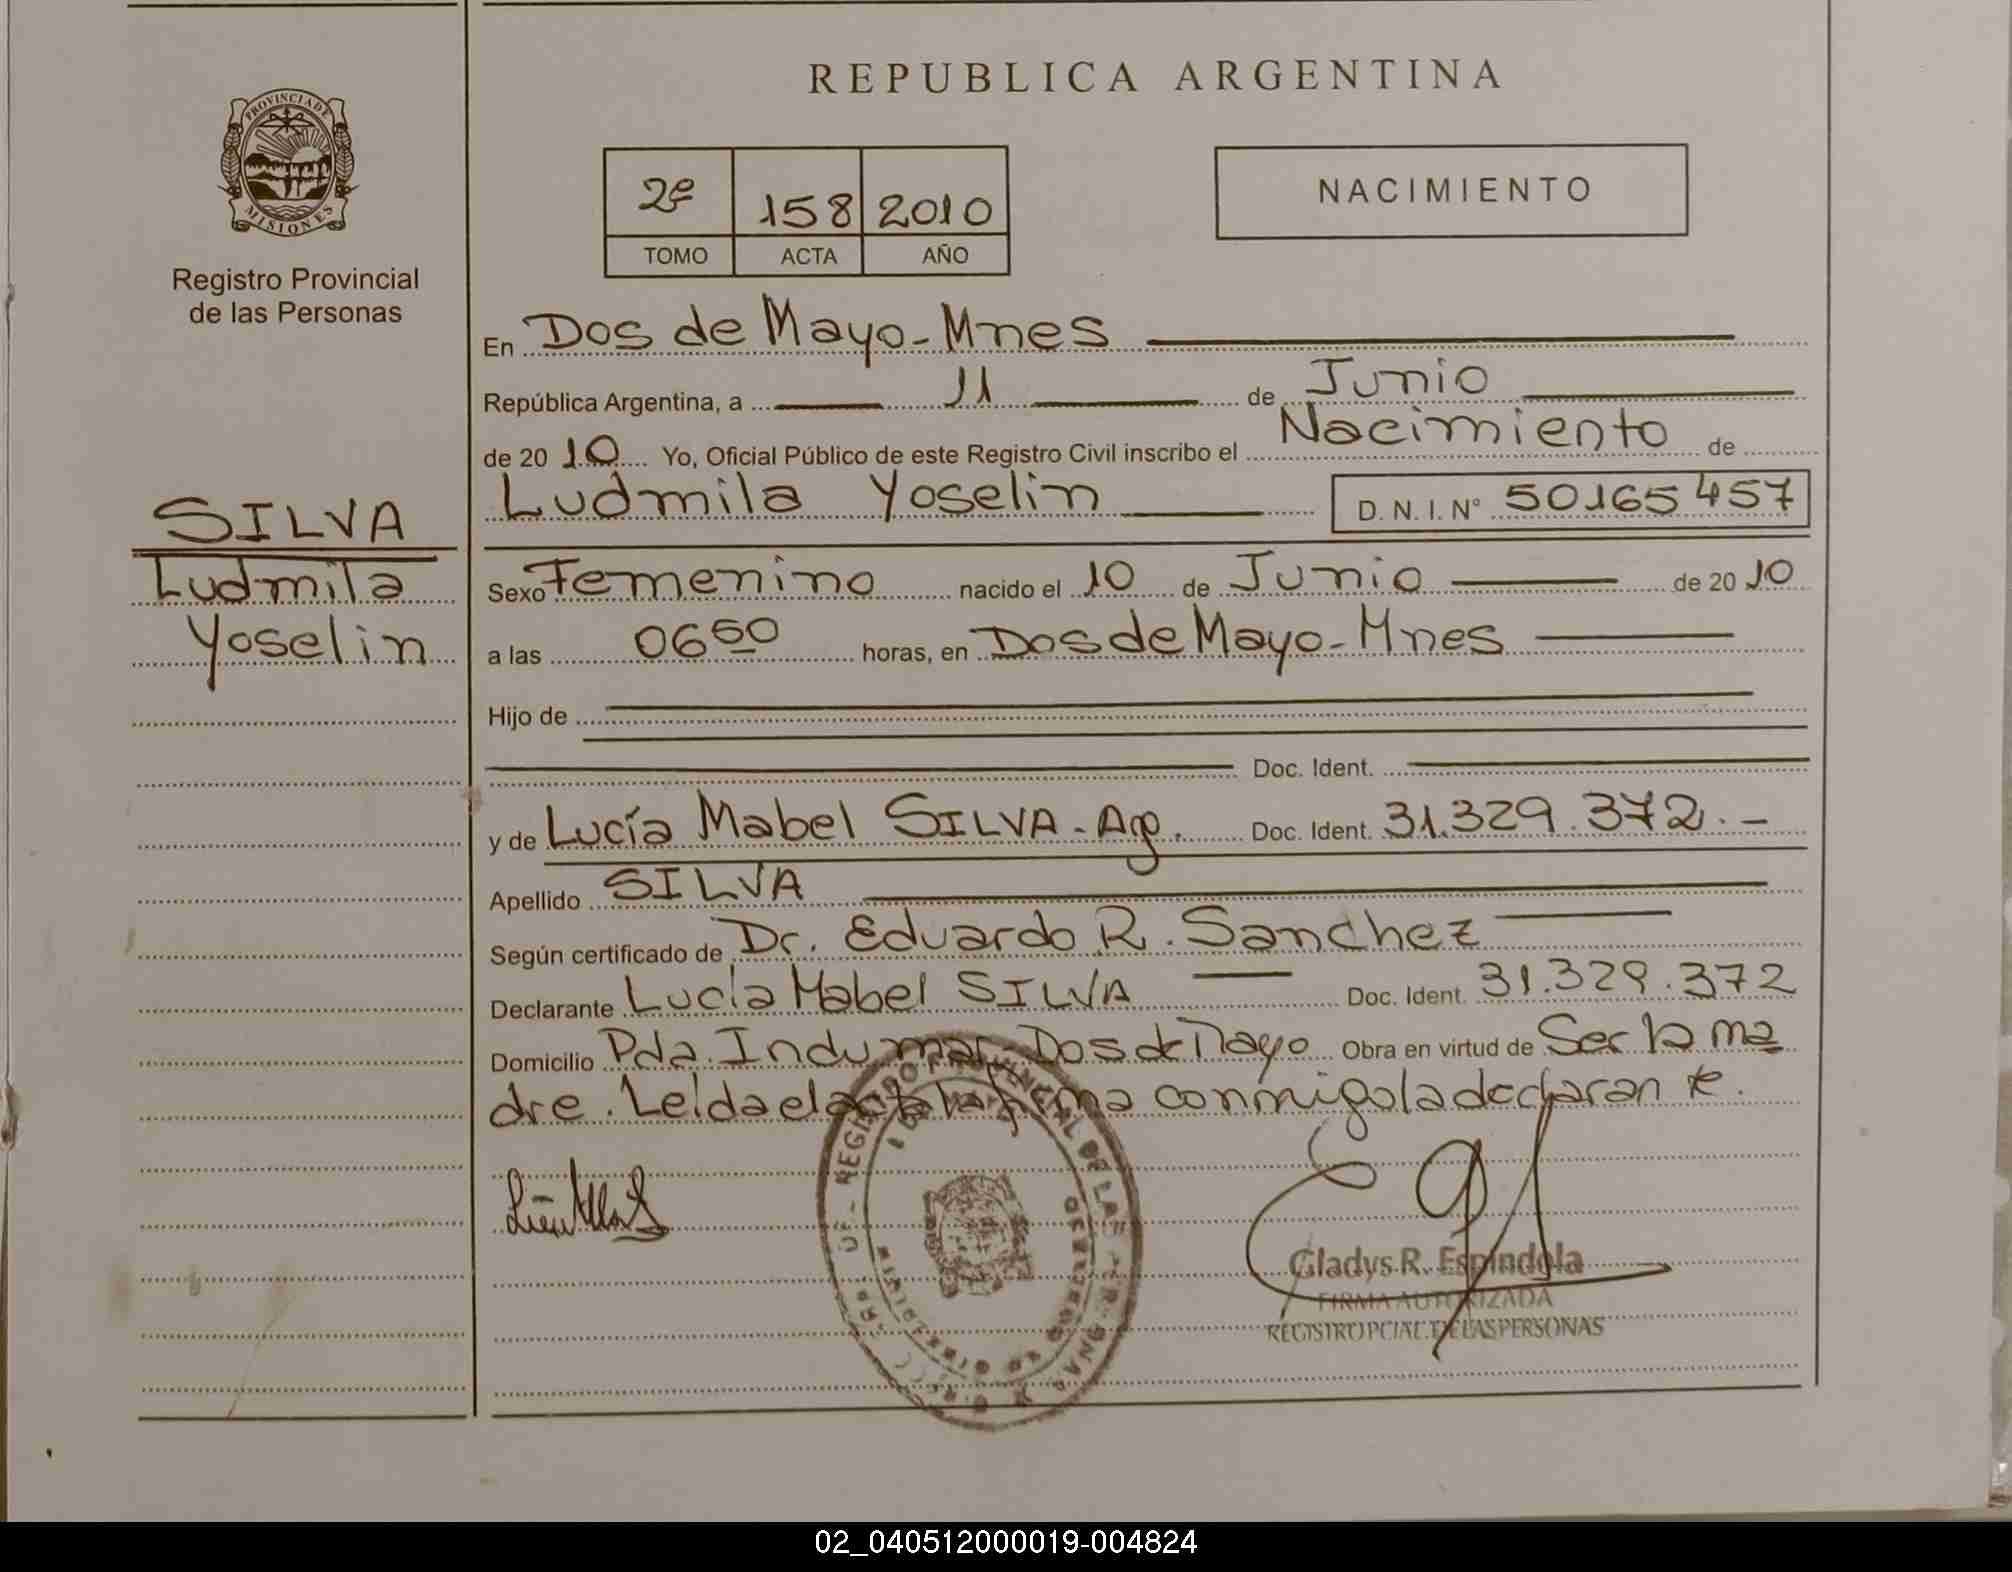 REPUBLICA ARGENTINA
PROVINCIA DE
MISIONES
Registro Provincial
de las Personas
2º 158 2010
TOMO ACTA AÑO
NACIMIENTO
En Dos de Mayo - Mnes
República Argentina, a 11 de Junio
de 20 10 Yo, Oficial Público de este Registro Civil inscribo el Nacimiento de
Ludmila Yoselin D. N. I. Nº 50165457
SILVA
Ludmila
Yoselin
Sexo Femenino nacido el 10 de Junio de 20 10
a las 06 50 horas, en Dos de Mayo - Mnes
Hijo de
Doc. Ident.
y de Lucía Mabel SILVA - Ag. Doc. Ident. 31.329.372.-
Apellido SILVA
Según certificado de Dr. Eduardo R. Sanchez
Declarante Lucía Mabel SILVA Doc. Ident. 31.329.372
Domicilio Pda. Indumar Dos de Mayo Obra en virtud de Ser la ma
dre. Leida el acta la firma conmigo la declarante.
Gladys R. Espindola
FIRMA AUTORIZADA
REGISTRO PCIAL. DE LAS PERSONAS
02_040512000019-004824